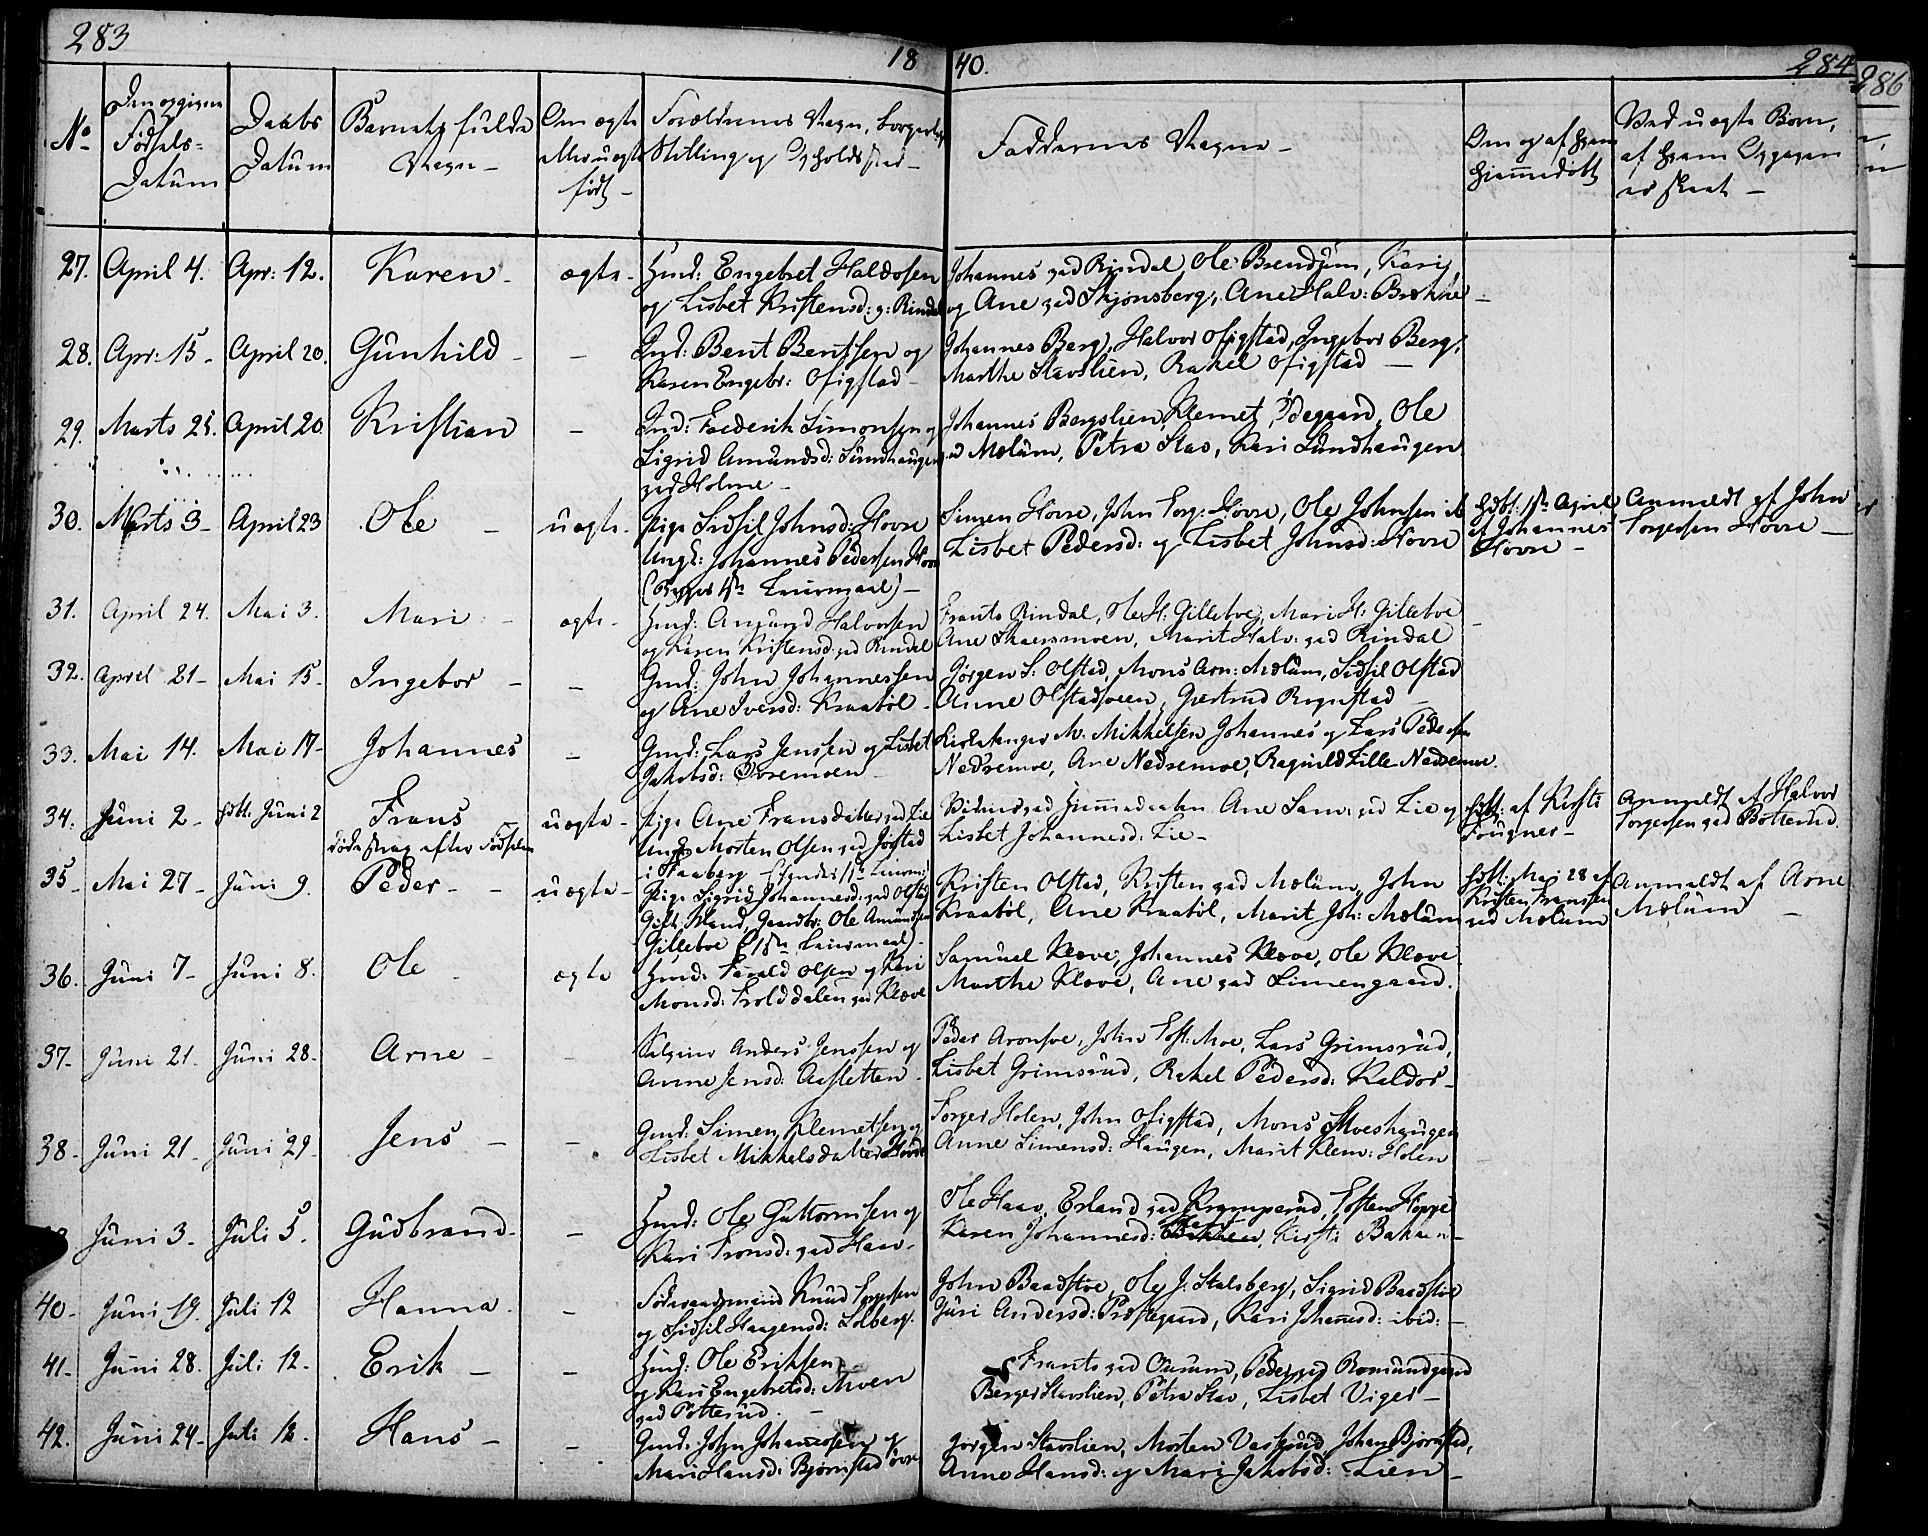 283
18 40.
284
286
No
Den opgivne Fødsels-Datum
Daabs Datum
Barnets fulde Navn -
Om ægte eller uægte født -
Forældrenes Navn, borgerlige Stilling og Opholdssted -
Faddernes Navne -
Om og af hvem hjemmedøbt
Ved uægte Børn, af hvem Opgaven er skeet -
27. April 4. Apr: 12. Karen - ægte -
Hmd: Engebret Haldosen
og Lisbet Kristensd: g: Rindal
Johannes grd Rindal, Ole Brendjim, Kari
og Ane grd Skjønsberg, Ane Halv: Brekke -
28. Apr. 15 - April 20. Gunhild - -
Ind: Bent Bentsen og
Karen Engebr: Ofigstad -
Johannes Berg, Halvor Ofigstad, Ingebor Berg,
Marthe Stavslien, Rakel Ofigstad -
29. Marts 25. April 20. Kristian -
Ind: Frederik Simonsen og
Sigrid Amundsd: Sundhaugen
grd Holme -
Johannes Bergslien, Klemet Ødegaard, Ole
grd Mælum, Petra Stav, Kari Sundhaugen
30. Marts 3 - April 23 Ole - uægte -
Pige Sidsil Johnsd: Hovre
Ungk: Johannes Pedersen Hovre
(Begges 1ste Leiermaal) -
Simen Hovre, John Torg: Hovre, Ole Johnsen ib
Lisbet Pedersd: og Lisbet Johnsd: Hovre
Hdbt: 1ste April
af Johannes
Hovre -
Anmeldt af John
Torgersen Hovre -
31. April 24. Mai 3. Mari - ægte -
Hmd: Amund Halvorsen
og Karen Kristensd: grd Rindal
Frants Rindal, Ole H: Gilleboe, Mari H: Gilleboe
Ane Skaersmoen, Marit Halv: grd Rindal
32. April 21 - Mai 15 - Ingebor - -
Gmd: John Johannessen
og Ane Iversd: Kraabøl -
Jørgen S: Olstad, Mons Arn: Mælum, Sidsil Olstad
Anne Olstadsveen, Gjertrud Rognstad -
33. Mai 14. Mai 17 - Johannes -
Gmd: Lars Jensen og Lisbet
Jakobsd: Øvremoen -
Kirkesanger M. Mikkelsen, Johannes og Lars Pedersen
Nedremoe, Ane Nedremoe, Ragnild Lille Nedremoe.
34. Juni 2 - Hdbt. Juni 2 Frans uægte -
døde strax efter Fødselen
Pige Ane Fransdatter grd Lie
Ungk: Morten Olsen grd Jørstad
i Faaberg
Vidner ved Hjemmedaaben Ane Sam: grd Lie og
Lisbet Johannesd: Lie -
Hdbt: af Kirsti
Fougner -
Anmeldt af Halvor
Torgersen grd Botterud.
35 - Mai 27 - Juni 9. Peder - - uægte -
Pige Sigrid Johannesd: grd Olstad
Gift Mand, Gaardbr: Ole Amundsen
Gilleboe (1ste Leiermaal) -
Kristen Olstad, Kristen grd Mælum, John
Kraabøl, Ane Kraabøl, Marit Joh: Mælum
Hdbt: Mai 28 af
Kristen Franssen
grd Mælum
Anmeldt af Arne
Mælum -
36. Juni 7 - Juni 8. Ole - ægte
Hmd: Harald Olsen og Kari
Monsd: Trolddalen grd Kløve
Samuel Kløve, Johannes Kløve, Ole Kløve
Marthe Kløve, Ane grd Limengaard.
37 - Juni 21. Juni 28 - Arne - -
Selveier Anders Jenssen og
Anne Jensd: Aasletten -
Peder Aronsve, John Toft: Moe, Lars Grimsrud,
Lisbet Grimsrud, Rakel Pedersd: Kaldor -
38 - Juni 21 - Juni 29 - Jens - -
Gmd: Simen Klemetsen og
Lisbet Mikkelsdatter Hovde
Torger Holen, John Ofigstad, Mons Moeshaugen
Anne Simensd: Haugen, Marit Klem: Holen
Juni 3 - Juli 5. Gudbrand - -
Hmd: Ole Guttormsen og
Kari Tronsd: grd Haav -
Ole Haav, Erland grd Krampesud, Tosten Hoppe
Karen Johannesd: Kirsti Bakken -
40 - Juni 19. Juli 12 Hanna - -
Føderaadsmand Knud Torgersen
og Sidsil Haagensd: Solberg.
John Baadstoe, Ole J. Stalsberg, Sigrid Baadstoe
Guri Andersd: Præstegaard, Kari Johannesd: ibid: -
41 - Juni 28. Juli 12 - Erik - -
Hmd: Ole Eriksen
og Kari Engebretsd: Moen
grd Potterud. -
Frants grd Aurum, Peder grd Romundgaard
Berger Stavslien, Petra Stav, Lisbet Viger -
42. Juni 24 - Juli 12. Hans - -
Gmd: John Johannesen og
Mari Hansd: Bjørnstad øvre
Jørgen Stavslien, Morten Vasrud, Johan Bjørnstad,
Anne Hansd: og Mari Jakobsd: Lien -